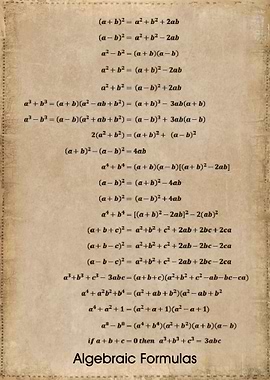 (a+b)² = a²+b²+2ab
(a−b)² = a²+b²−2ab
a²−b² = (a+b)(a−b)
a²+b² = (a+b)²−2ab
a²+b² = (a−b)²+2ab
a³+b³ = (a+b)(a²−ab+b²) = (a+b)³−3ab(a+b)
a³−b³ = (a−b)(a²+ab+b²) = (a−b)³+3ab(a−b)
2(a²+b²) = (a+b)²+ (a−b)²
(a+b)²−(a−b)² = 4ab
a⁴+b⁴ = (a+b)(a−b)[(a+b)²−2ab]
(a−b)² = (a+b)²−4ab
(a+b)² = (a−b)²+4ab
a⁴+b⁴ = [(a+b)²−2ab]²−2(ab)²
(a+b+c)² = a²+b²+c²+2ab+2bc+2ca
(a+b−c)² = a²+b²+c²+2ab−2bc−2ca
(a−b−c)² = a²+b²+c²−2ab+2bc−2ca
a³+b³+c³−3abc=(a+b+c)(a²+b²+c²−ab−bc−ca)
a⁴+a²b²+b⁴ = (a²+ab+b²)(a²−ab+b²
a⁴+a²+1 = (a²+a+1)(a²−a+1)
a⁸−b⁸ = (a⁴+b⁴)(a²+b²)(a+b)(a−b)
if a+b+c=0 then a³+b³+c³ = 3abc
Algebraic Formulas